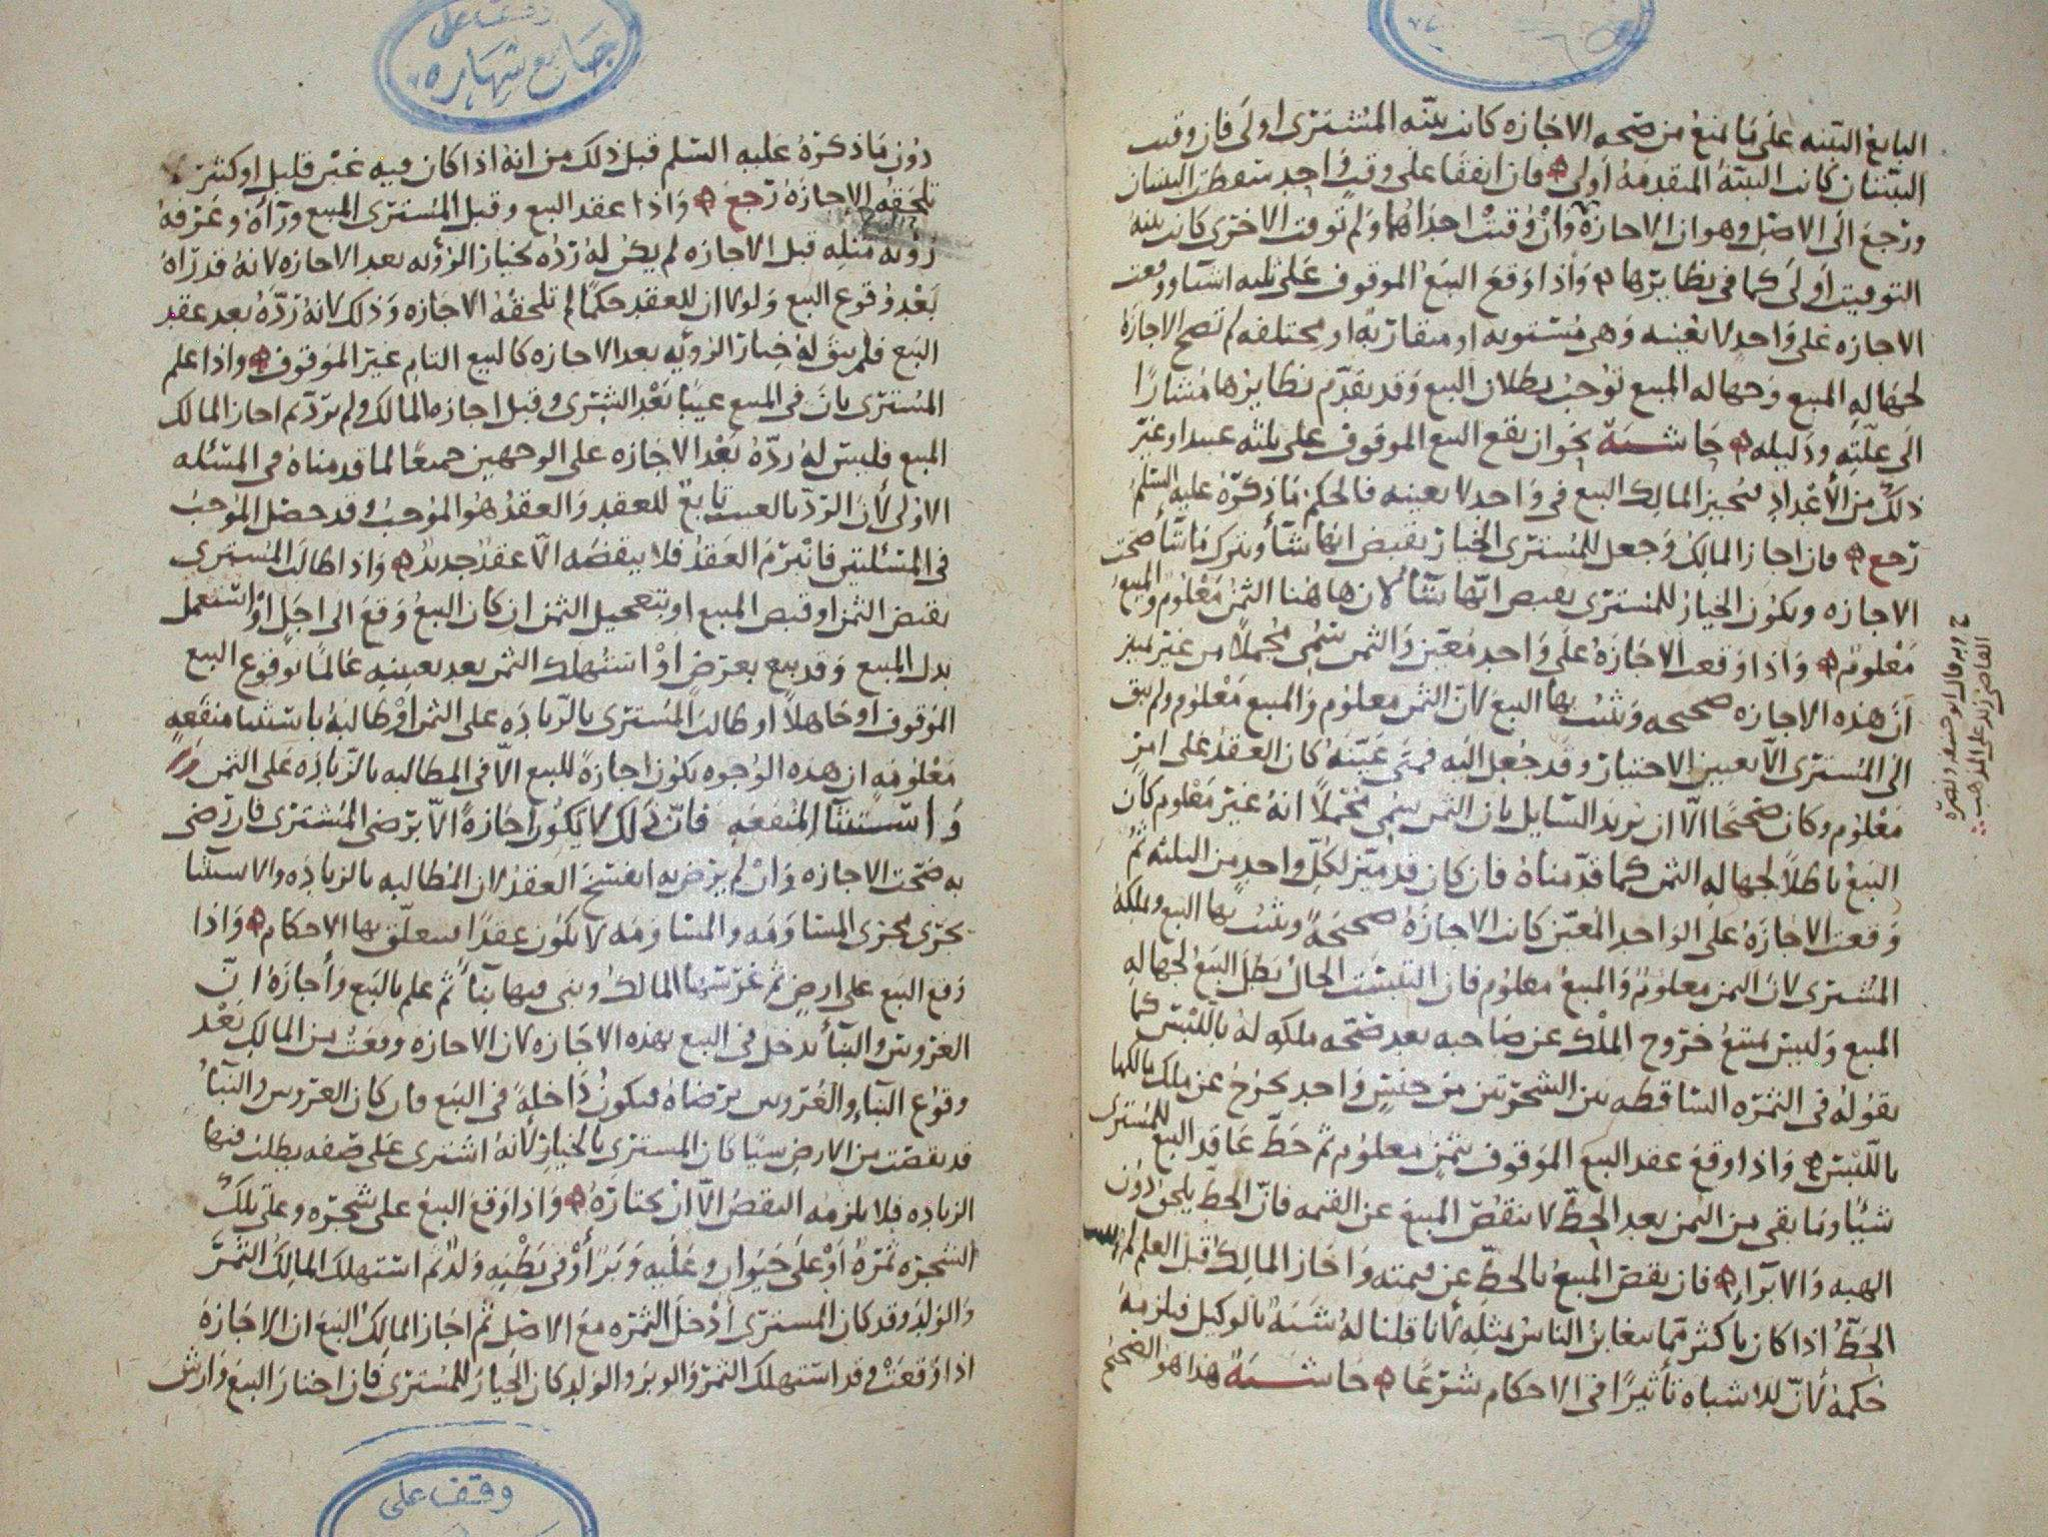 البايع البينه على ما يمنع من صحه الاجازه كانت بينه المشترى اولى فان وقتت
البينتان كانت البينة المتقدمة أولى فان اتفقا على وقت واحد سقطت البينتان
ورجع الى الاصل وهو ان لا اجازة وان وقتت احداهما ولم توقت الاخرى كانت بينة
التوقيت اولى كما فى نظايرها واذا وقع البيع الموقوف على ثلثه اشيا ووقعت
الاجازه على واحد لا بعينه وهى مستويه او متقاربة او مختلفه لم تصح الاجازة
لجهاله المبيع وجهاله المبيع توجب بطلان البيع وقد تقدم نظايرها مشارا
الى علته ودليله حاشية نحو ان يقع البيع الموقوف على ثلثه عبيد او غير
ذلك من الأعداد فيجيز المالك البيع فى واحد لا بعينه فالحكم ما ذكره عليه السلم
رجع فان اجاز المالك وجعل للمشترى الخيار بقبض ايها شأ ويترك ما شأ صحت
الاجازه ويكون الخيار للمشترى بقبض ايها شأ لان هاهنا الثمن معلوم والمبيع
معلوم واذا وقعت الاجازة على واحد معين والثمن سمى مجملا من غير تمييز
ان هذه الاجازه صحيحه وثبت بها البيع لان الثمن معلوم والمبيع معلوم ولم يبق
الى المشترى الا تعيين الاختيار وقد جعل اليه فمتى عينه كان العقد على امر
معلوم وكان صحيحا الا ان يريد السايل بان الثمن سمى مجملا انه غير معلوم كان
البيع باطلا لجهاله الثمن كما قدمناه فان كان قد ميز لكل واحد من الثلثه ثم
وقعت الاجازة على الواحد المعين كانت الاجازة صحيحة وثبت بها البيع وملكه
المشترى لان الثمن معلوم والمبيع معلوم فان التبست الحال بطل البيع لجهاله
المبيع وليس يمتنع خروج الملك عن صاحبه بعد صحه ملكه له باللبس كما
نقوله فى الثمره الساقطه بين الشجرتين من جنس واحد تخرج عن ملك مالكها
باللبس واذا وقع عقد البيع الموقوف بثمن معلوم ثم حط عاقد البيع للمشترى
شيئا وما بقى من الثمن بعد الحط لا ينقص المبيع عن القيمه فان الحط يلحق دون
الهبه والابرا فان نقص المبيع بالحط عن قيمته واجاز المالك قبل العلم لم
الحط اذا كان باكثر مما يتغابن الناس بمثله لأنا قلنا له شبه بالوكيل فيلزمه
حكمه لأن للاشباه تأثيرا فى الاحكام شرعا حاشية هذا هو الصحيح
ح وبه قال ابو حنيفه ونصره
القاضى زيد على المذهب
وقف على
جامع شهاره
دون ما ذكره عليه السلم قبل ذلك من انه اذا كان فيه غبن قليل او كثير
تلحقه الاجازة رجع واذا عقد البيع وقبل المشترى المبيع ورآه وعرفه
رؤية مثله قبل الاجازه لم يكن له رده بخيار الرؤيه بعد الاجازه لانه قد رآه
بعد وقوع البيع ولولا ان للعقد حكما لم تلحقه الاجازه وذلك لانه رده بعد عقد
البيع فلم يبق له خيار الرؤيه بعد الاجازه كالبيع التام غير الموقوف واذا علم
المشترى بان فى المبيع عيبا بعد الشرى وقبل اجازه المالك ولم يرد ثم اجاز المالك
البيع فليس له رده بعد الاجازه على الوجهين جميعا لما قدمناه فى المسئله
الاولى لأن الرد بالعيب تابع للعقد والعقد هو الموجب وقد حصل الموجب
فى المسئلتين فانبرم العقد فلا ينقضه الا عقد جديد واذا طالب المشترى
بقبض الثمن او قبض المبيع او بتعجيل الثمن ان كان البيع وقع الى اجل او استعمل
بدل المبيع وقد بيع بعرض او استهلك الثمن بعد تعيينه عالما بوقوع البيع
الموقوف او جاهلا او طالب المشترى بالزياده على الثمن او طالبه باستثنا منفعه
معلومه ان هذه الوجوه يكون اجازة للبيع الا فى المطالبه بالزياده على الثمن
واستثنآ المنفعه فان ذلك لا يكون اجازة الا برضى المشترى فان رضى
به صحت الاجازه وان لم يرض به انفسخ العقد لان المطالبه بالزياده والاستثنا
تجرى مجرى المساومه والمساومه لا يكون عقدا يتعلق بها الاحكام واذا
وقع البيع على ارض ثم غرسها المالك وبنى فيها بنآ ثم علم بالبيع وأجازه ان
الغروس والبنأ تدخل فى البيع بهذه الاجازه لان الاجازه وقعت من المالك بعد
وقوع البنآ والغروس برضاه فيكون داخلة فى البيع فان كان الغروس والبنآ
قد نقصت من الارض شيا كان المشترى بالخيار لأنه اشترى على صفه بطلت فيها
الزياده فلا يلزمه النقص الا ان يختاره واذا وقع البيع على شجره وعلى تلك
الشجره ثمرة او على حيوان وعليه وبر أو فى بطنه ولد ثم استهلك المالك الثمر
والولد وقد كان المشترى ادخل الثمره مع الاصل ثم اجاز المالك البيع ان الاجازة
اذا وقعت وقد استهلك الثمر والوبر والولد كان الخيار للمشترى فان اختار البيع وارش
وقف على